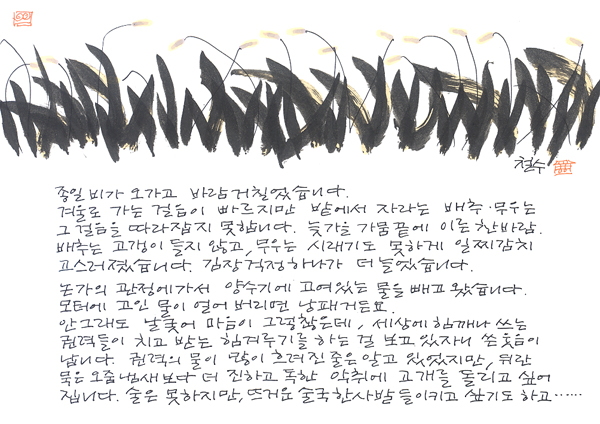 철수
종일 비가 오가고 바람 거칠었습니다.
겨울로 가는 걸음이 빠르지만 밭에서 자라는 배추·무우는
그 걸음을 따라잡지 못합니다. 늦가을 가뭄 끝에 이른 찬바람.
배추는 고갱이 들지 않고, 무우는 시래기도 못하게 일찌감치
고스러졌습니다. 김장걱정 하나가 더 늘었습니다.
논가의 관정에 가서 양수기에 고여있는 물을 빼고 왔습니다.
모터에 고인 물이 얼어 버리면 낭패거든요.
안그래도 날 궂어 마음이 그렇찮은데, 세상에 힘깨나 쓰는
권력들이 치고 받는 힘겨루기를 하는 걸 보고 있자니 쓴웃음이
납니다. 권력의 물이 많이 흐려진 줄은 알고 있었지만, 뒤란
묵은 오줌냄새보다 더 진하고 독한 악취에 고개를 돌리고 싶어
집니다. 술은 못하지만, 뜨거운 술국 한사발 들이키고 싶기도 하고……